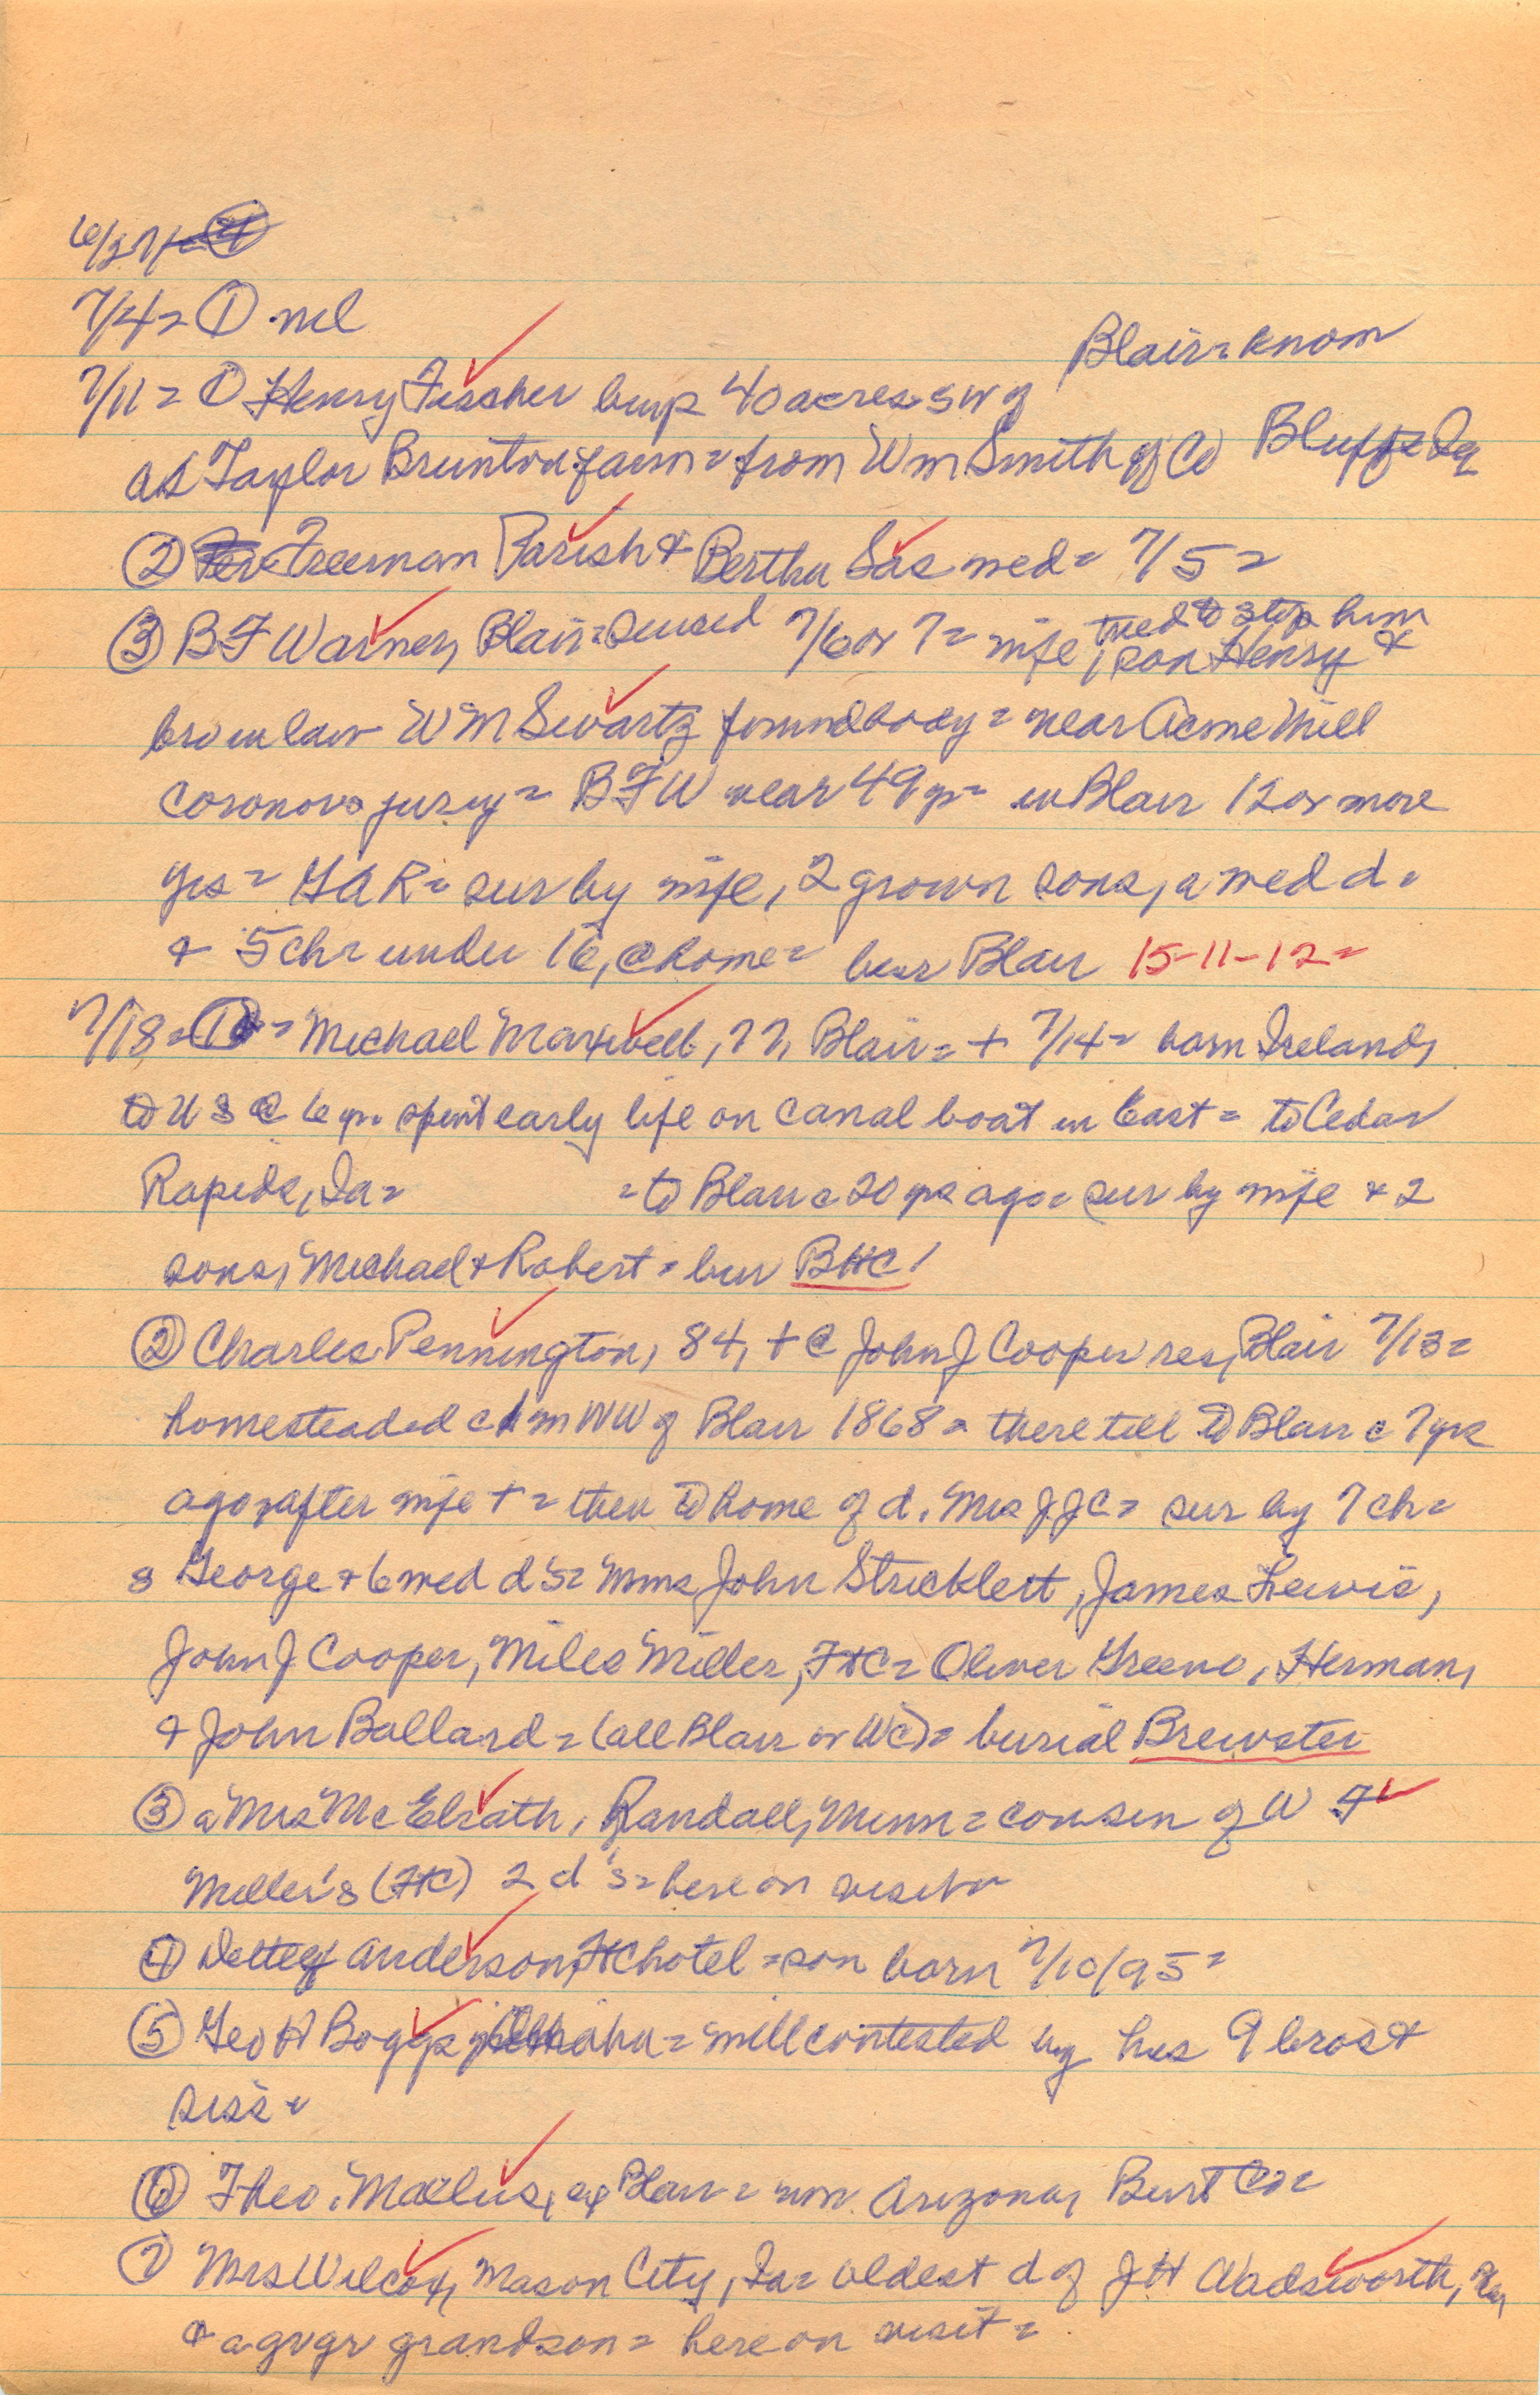 6/27=
7/4= ① nil
7/11= ① Henry Fischer buys 40 acres SW of Blair= know
as Taylor Brunton farm= from Wm Smith of Co Bluffs Ia
② Freeman Parish & Bertha Sas med= 7/5=
③ BF Warner, Blair= 7/6 or 7= wife, tried to stop him, son Henry &
bro in law WM Swartz found body= near Acme Mill
coronors jury= BFW near 49 yr= in Blair 12 or more
yrs= GAR= sur by wife, 2 grown sons, a med d=
& 5 ch= under 16, @ home= bur Blair 15-11-12=
7/18= ①= Michael Maxwell, 77, Blair= + 7/14= born Ireland,
to US @ 6 yr. spent early life on canal boat in East= to Cedar
Rapids, Ia= =to Blair c 20 yrs ago= sur by wife & 2
sons, Michael & Robert= bur BHC!
② Charles Pennington, 84, + @ John J Cooper res, Blair 7/13=
homesteaded c 1 m NW of Blair 1868= there till to Blair c 7 yrs
ago, after wife += then to home of d. Mrs JJC= sur by 7 ch=
s George & 6 med d's= Mms John Stricklett, James Lewis,
John J Cooper, Miles Miller, FtC= Oliver Greeno, Herman,
& John Ballard= (all Blair or WC)= burial Brewster
③ a Mrs McElrath, Randall, Minn= cousin of W F
Miller's (FtC) 2 d's= here on visit=
④ Detlef Anderson, FtC hotel= son born 7/10/95=
⑤ Geo H Boggs, Omaha= will contested by his 9 bros &
siss=
⑥ Theo. Maelius, ex Blair= now Arizona, Burt Co=
⑦ Mrs Wilcox, Mason City, Ia= oldest d of JH Wadsworth,
& a gr gr grandson= here on visit=